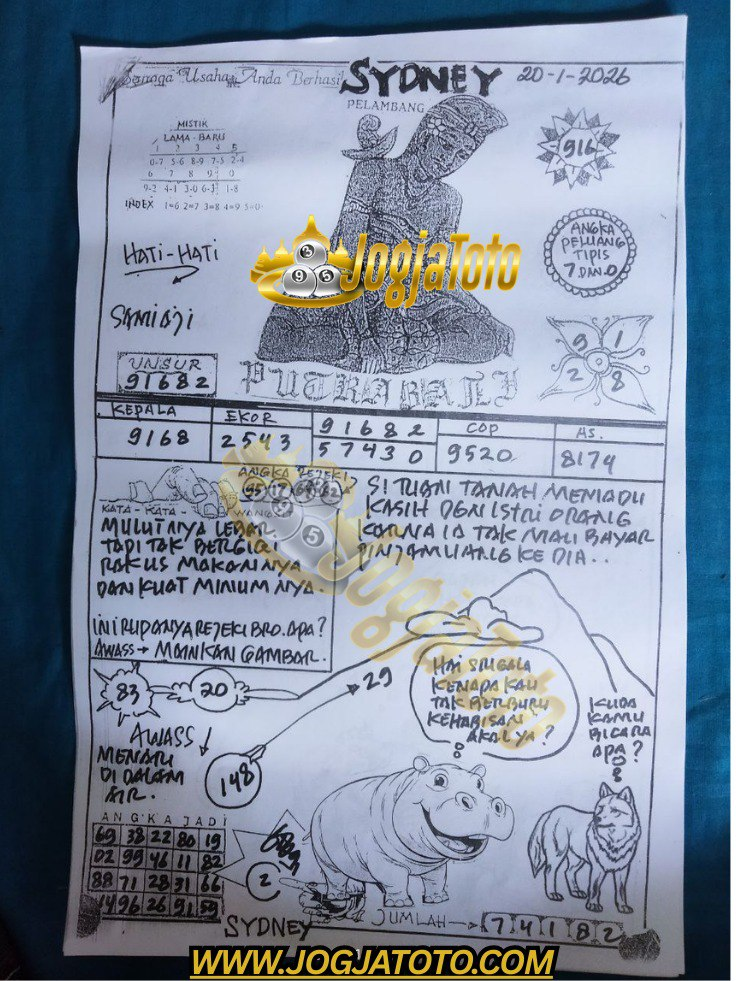 Semoga Usaha Anda Berhasil
SYDNEY 20-1-2026
PELAMBANG
MISTIK
LAMA - BARU
1 2 3 4 5
0-7 5-6 8-9 7-5 2-4
6 7 8 9 0
9-2 4-1 3-0 6-3 1-8
INDEX 1=6 2=7 3=8 4=9 5=0
916
HATI-HATI
ANGKA
PELUANG
TIPIS
7 DAN 0
JogjaToto
SAMIAJI
UNSUR
91682
9 1
2 8
PUTRA BALI
KEPALA EKOR 91682 COP AS.
9168 2543 57430 9520 8174
ANGKA REJEKI
KATA - KATA
MULUTNYA LEBAR
TAPI TAK BERGIGI
RAKUS MAKANNYA
DAN KUAT MINUM NYA.
INI RUPANYA REJEKI BRO. APA?
AWASS → MAINKAN GAMBAR.
SI TUAN TANAH MEMADU
KASIH DGN ISTRI ORANG
KARNA IA TAK MAU BAYAR
PINJAM UANG KE DIA..
JogjaToto
83 20 29
HAI SRIGALA
KENAPA KAU
TAK BERBURU
KEHABISAN
AKAL YA?
KUDA
KAMU
BICARA
APA?
AWASS
MENARI
DI DALAM
AIR.
148
ANGKA JADI
69 38 22 80 19
02 99 46 11 82
88 71 28 31 66
44 96 26 91 59
2
SYDNEY
JUMLAH → 7 4 1 8 2
WWW.JOGJATOTO.COM